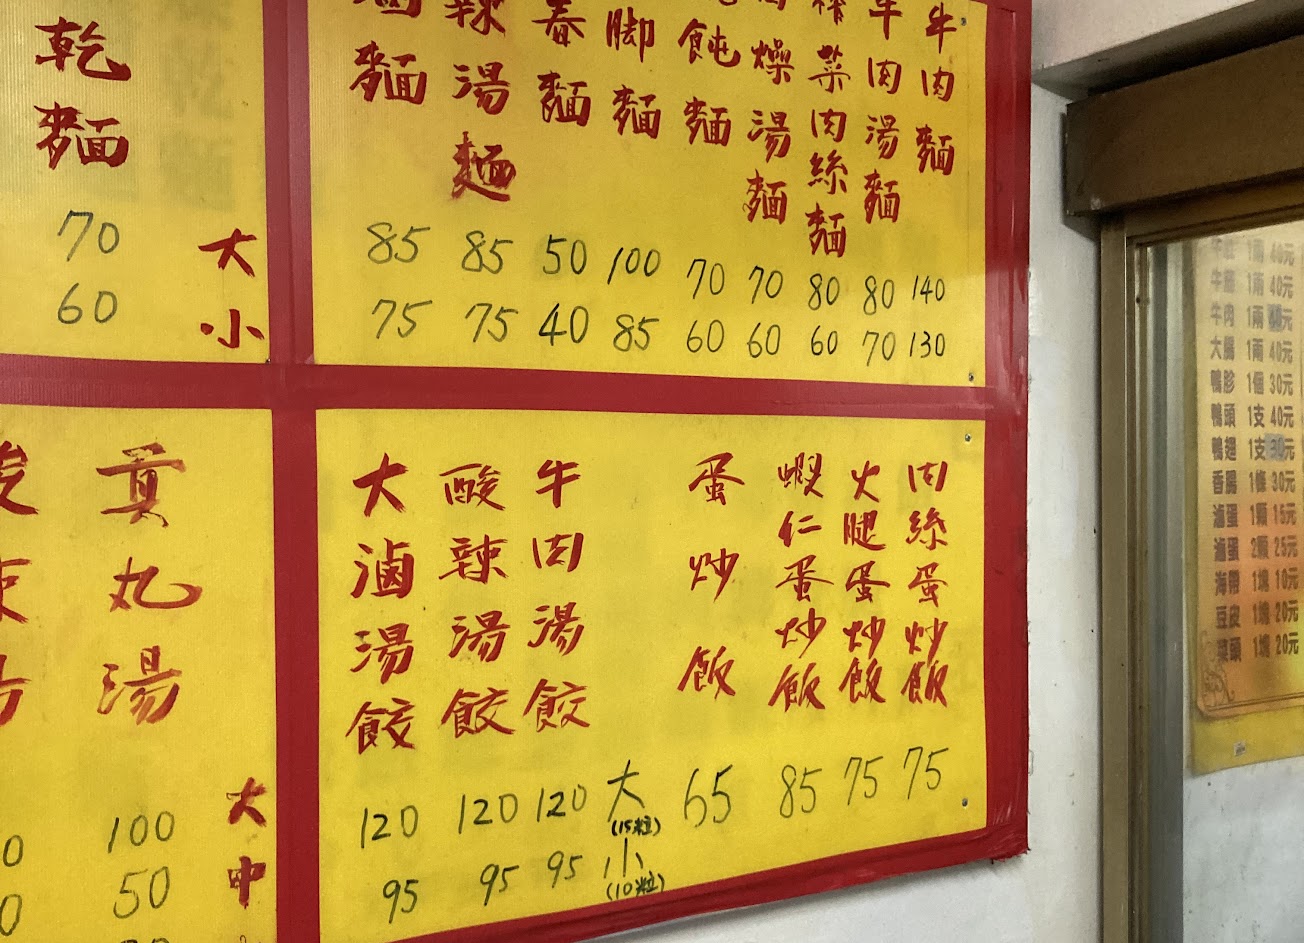 牛肉麵 140 130
牛肉湯麵 80 70
榨菜肉絲麵 80 60
燥湯麵 70 60
飩麵 70 60
脚麵 100 85
春麵 50 40
辣湯麵 85 75
滷麵 85 75
大 小
乾麵 70 60
肉絲蛋炒飯 75
火腿蛋炒飯 75
蝦仁蛋炒飯 85
蛋炒飯 65
大(15粒) 小(10粒)
牛肉湯餃 120 95
酸辣湯餃 120 95
大滷湯餃 120 95
大 中
貢丸湯 100 50
1兩 40元
牛筋 1兩 40元
牛肉 1兩
大腸 1兩 40元
鴨胗 1個 30元
鴨頭 1支 40元
鴨翅 1支 30元
香腸 1條 30元
滷蛋 1顆 15元
滷蛋 2顆 25元
海帶 1塊 10元
豆皮 1塊 20元
菜頭 1塊 20元